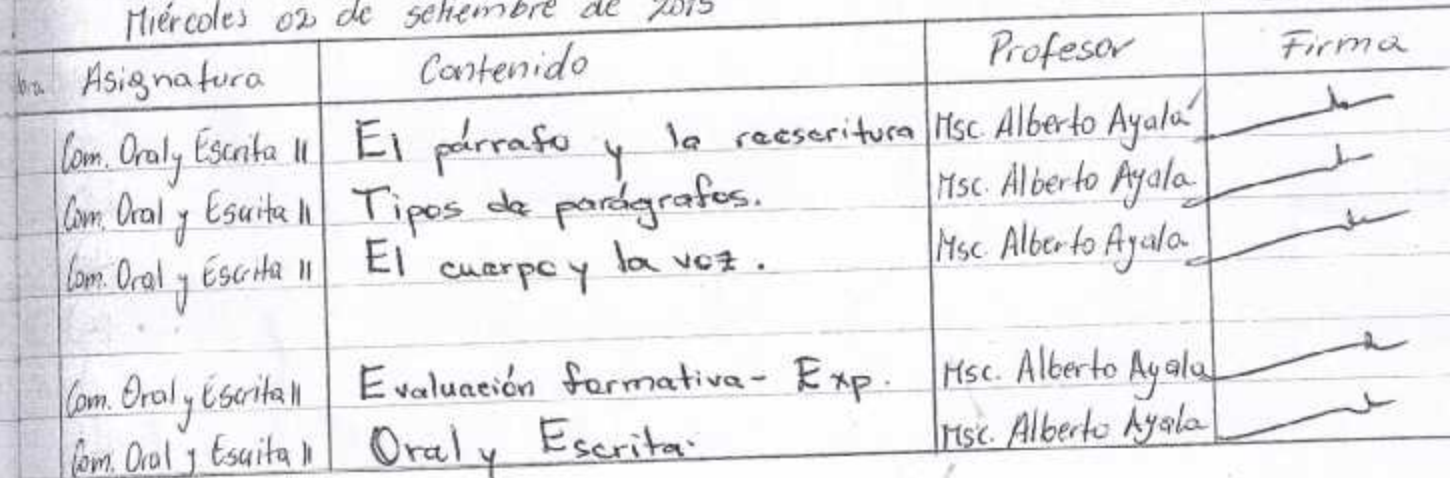 Miércoles 02 de setiembre de 2015
Asignatura Contenido Profesor Firma
Com. Oral y Escrita II El párrafo y la reescritura Msc. Alberto Ayala
Com. Oral y Escrita II Tipos de parágrafos. Msc. Alberto Ayala
Com. Oral y Escrita II El cuerpo y la voz. Msc. Alberto Ayala
Com. Oral y Escrita II Evaluación formativa - Exp. Msc. Alberto Ayala
Com. Oral y Escrita II Oral y Escrita. Msc. Alberto Ayala